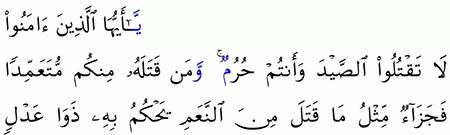 يَـٰٓأَيُّهَا ٱلَّذِينَ ءَامَنُوا۟
لَا تَقْتُلُوا۟ ٱلصَّيْدَ وَأَنتُمْ حُرُمٌ ۚ وَمَن قَتَلَهُۥ مِنكُم مُّتَعَمِّدًا
فَجَزَآءٌ مِّثْلُ مَا قَتَلَ مِنَ ٱلنَّعَمِ يَحْكُمُ بِهِۦ ذَوَا عَدْلٍ